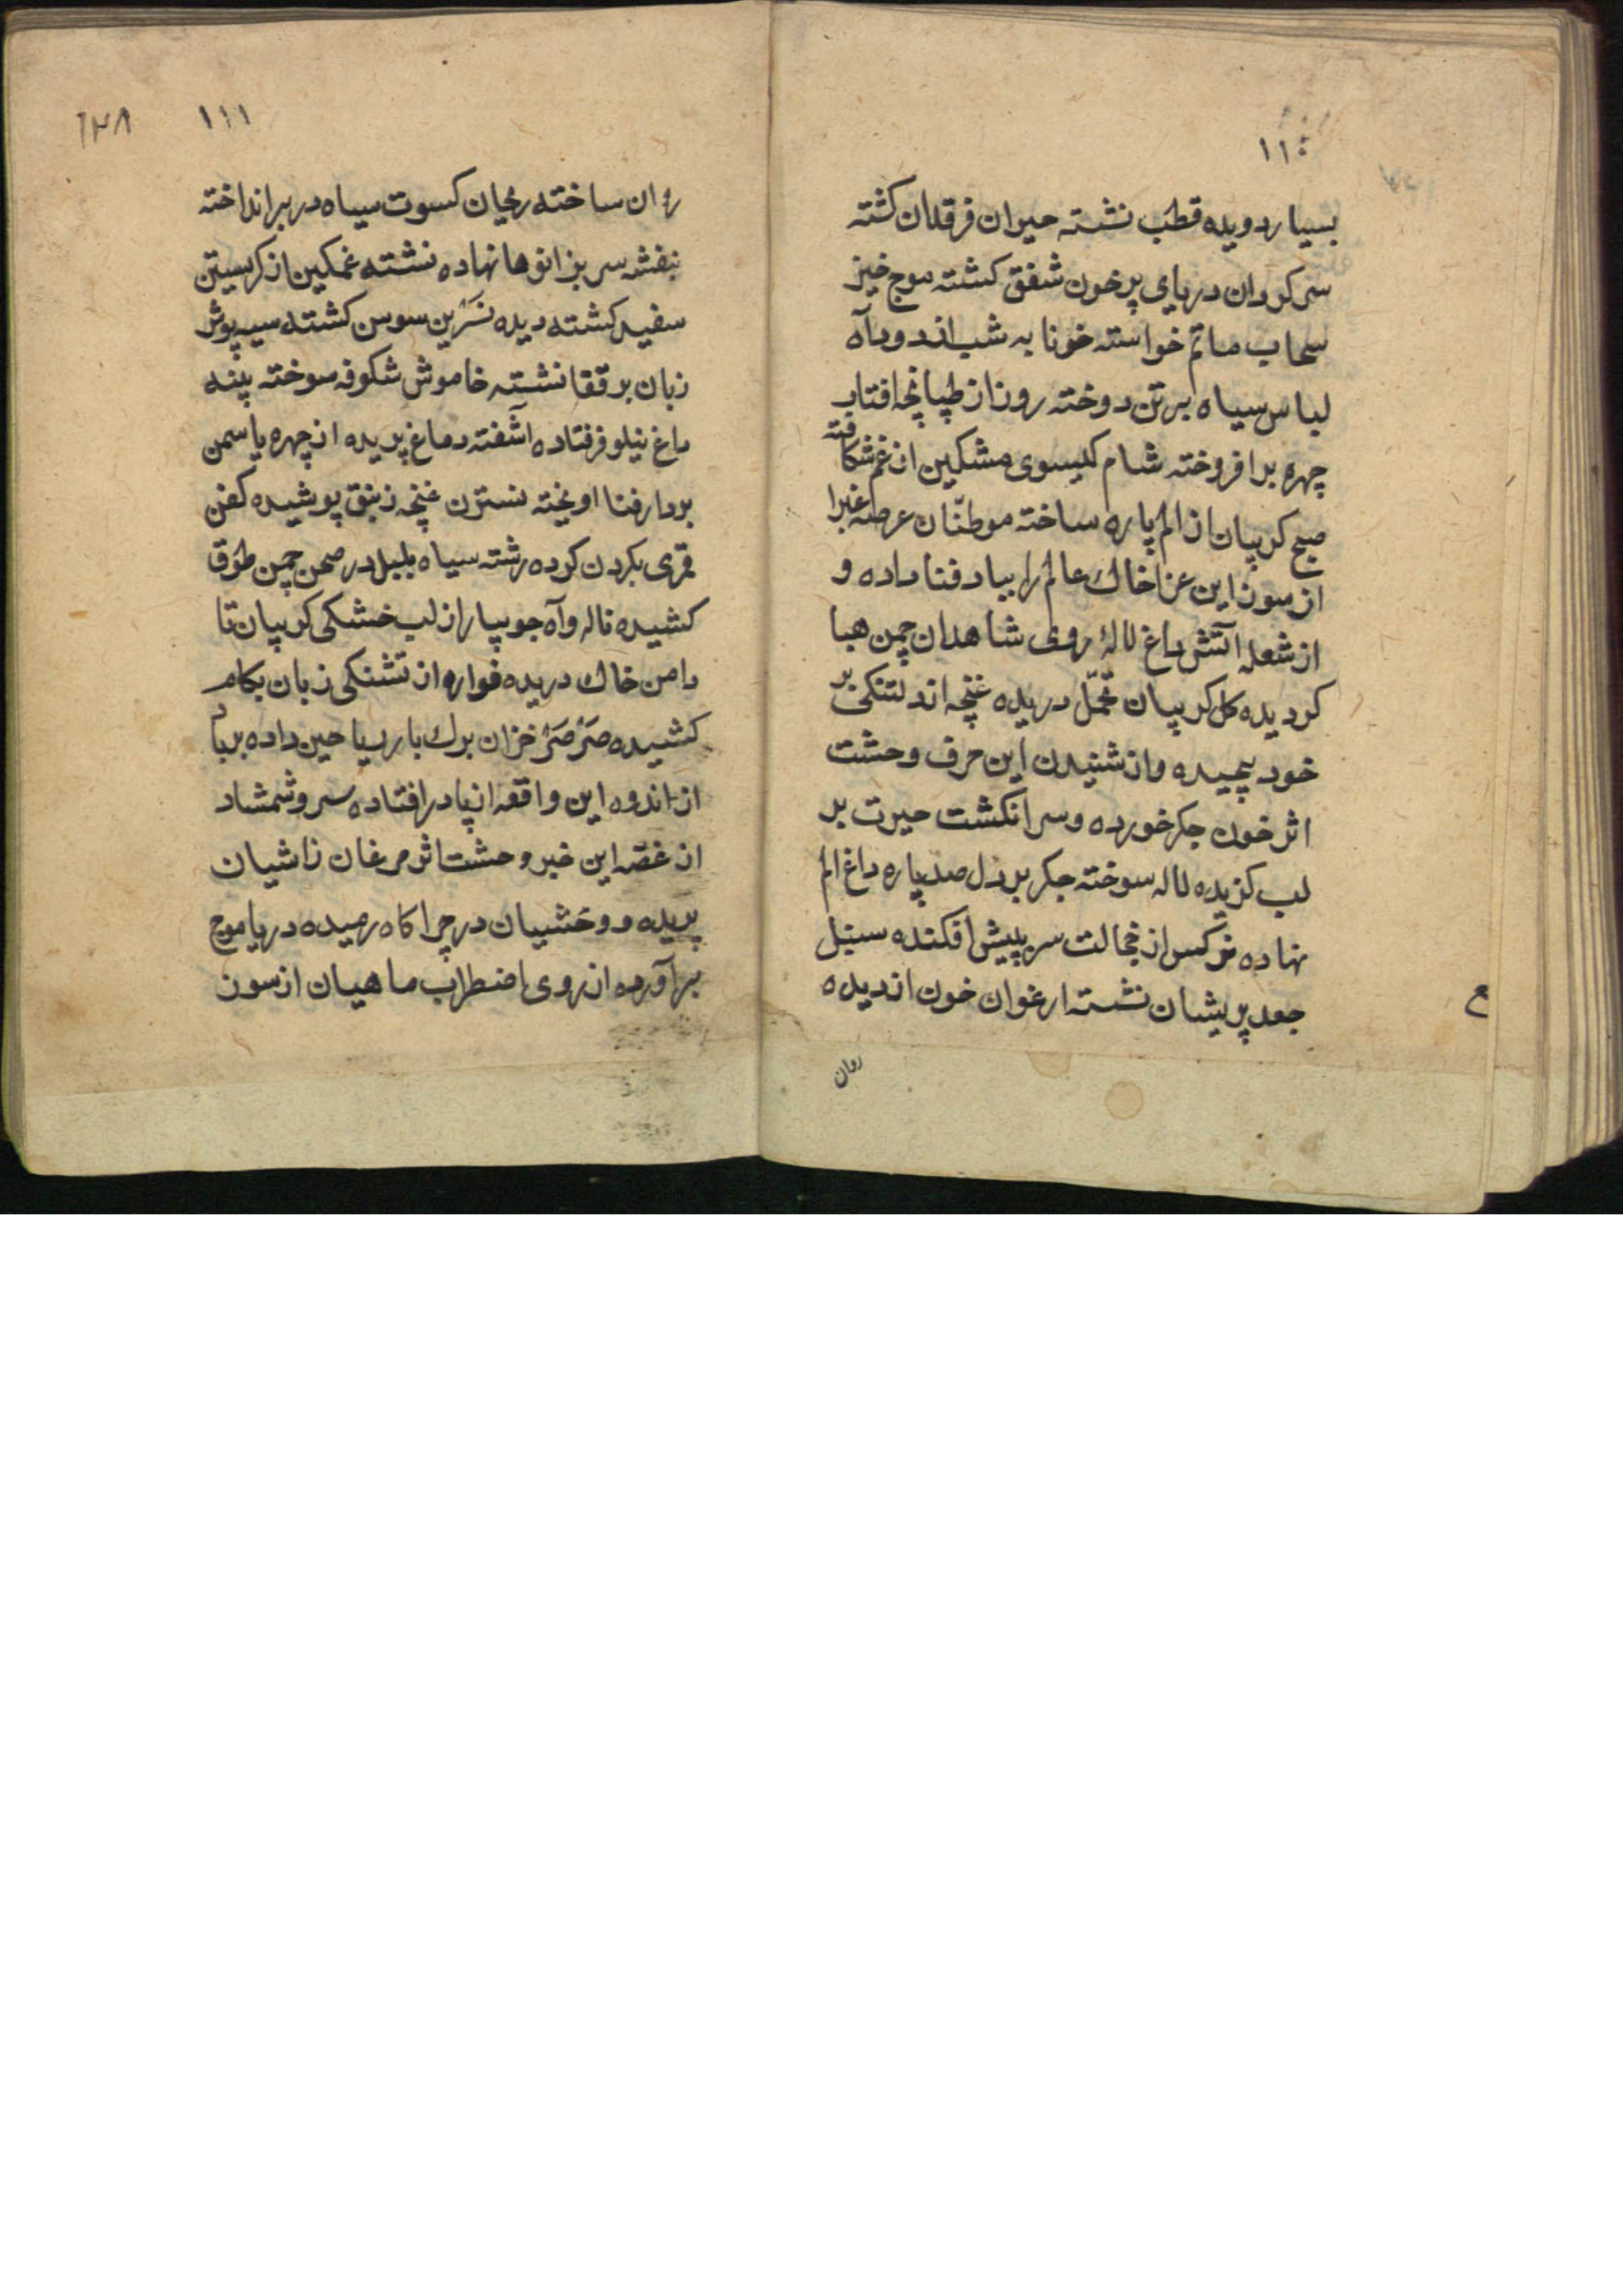 ۱۱۰
بسیار دویده قطب نشسته حیران فرقدان کشته
سرکردان دریای پرخون شفق کشته موج خیز
سحاب ماتم خواسته خونابه شب از دود آه
لباس سیاه برتن دوخته روز از طپانچه افتاب
چهره برافروخته شام کیسوی مشکین از غم شکافته
صبح کریبان از الم پاره ساخته موطنّان عرصه غبرا
از سوز این عزا خاك عالم را بباد فنا داده و
از شعله اتش داغ لالهٔ روی شاهدان چمن هبا
کردیده کل کریبان تحمّل دریده غنچه از دلتنکی بر
خود پیچیده و از شنیدن این حرف وحشت
اثر خون جکر خورده و سر انکشت حیرت بر
لب کزیده لاله سوخته جکر بر دل صد پاره داغ الم
نهاده نرکس از خجالت سر بپیش افکنده سنبل
جعد پریشان نشسته ارغوان خون از دیده
روان
ع
۱۱۱
۱۲۸
روان ساخته ریحان کسوت سیاه در بر انداخته
بنفشه سر بزانوها نهاده نشسته غمکین از کریستن
سفید کشته دیده نسرین سوسن کشته سیه پوش
زبان بر قفا نشسته خاموش شکوفه سوخته پنبه
داغ نیلوفر فتاده آشفته دماغ پریده از چهره یاسمن
بردار فنا اویخته نسترن غنچه زنبق پوشیده کفن
قمری بکردن کرده رشته سیاه بلبل در صحن چمن طوق
کشیده ناله و آه جویبار از لب خشکی کریبان تا
دامن خاك دریده فواره از تشنکی زبان بکام
کشیده صَرْصَرْ خزان برك بار ریاحین داده برباد
از اندوه این واقعه از پا در افتاده سرو شمشاد
از غصّه این خبر وحشت اثر مرغان ز اشیان
پریده و وحشیان در چراکاه رمیده دریا موج
برآورده از روی اضطراب ماهیان از سوز